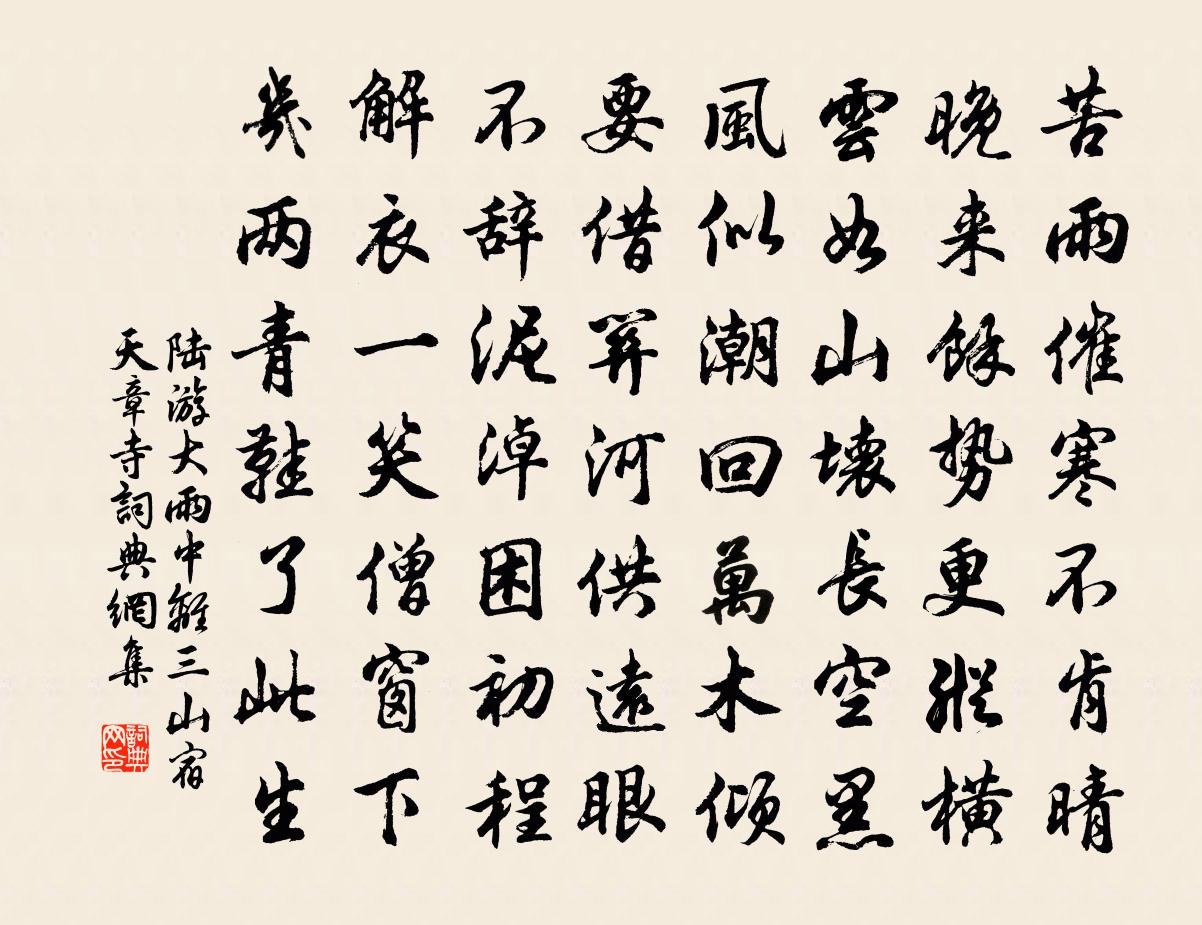 苦雨催寒不肯晴
晚来餘勢更縱橫
雲如山壞長空黑
風似潮回萬木傾
要借筭河供遠眼
不辞泥淖困初程
解衣一笑僧窗下
幾两青鞋了此生
陆游大雨中離三山宿
天章寺詞典網集
詞典网印